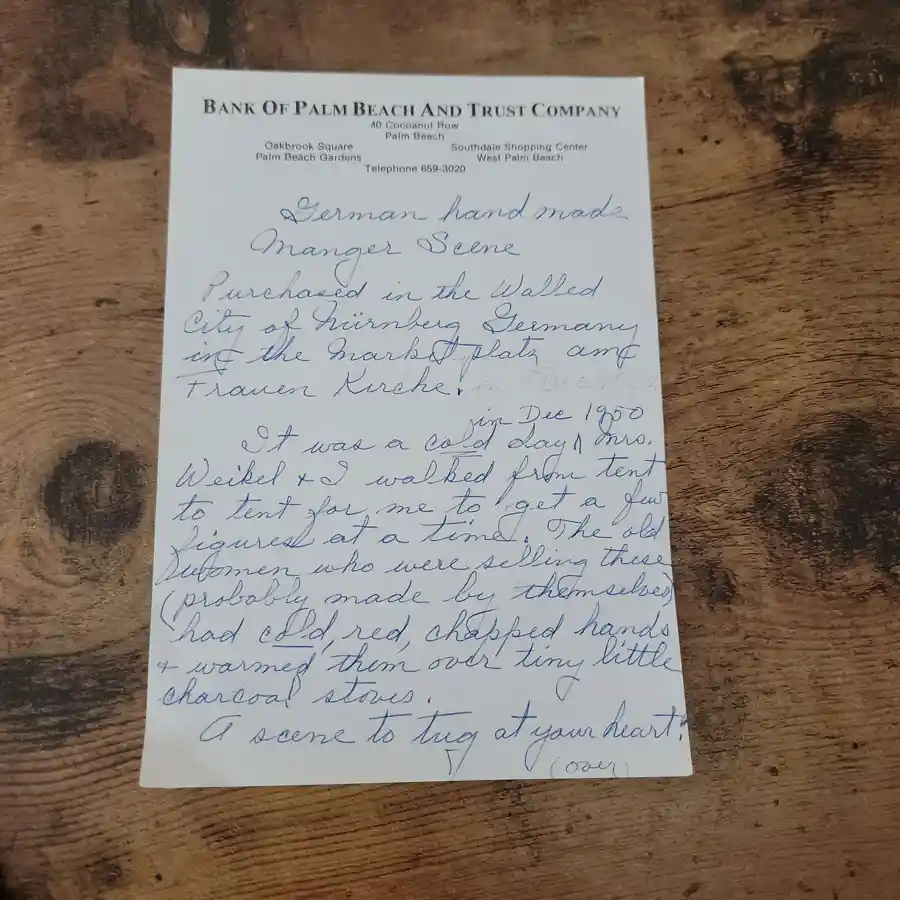 BANK OF PALM BEACH AND TRUST COMPANY
40 Cocoanut Row
Palm Beach
Oakbrook Square
Palm Beach Gardens
Southdale Shopping Center
West Palm Beach
Telephone 659-3020
German hand made
Manger Scene
Purchased in the Walled
City of Nürnberg Germany
in the Market platz
Frauen Kirche.
in Dec 1950
It was a cold day Mrs.
Weikel + I walked from tent
to tent for me to get a few
figures at a time. The old
women who were selling these
(probably made by themselves)
had cold, red, chapped hands
+ warmed them over tiny little
charcoal stoves.
A scene to tug at your heart!
(over)